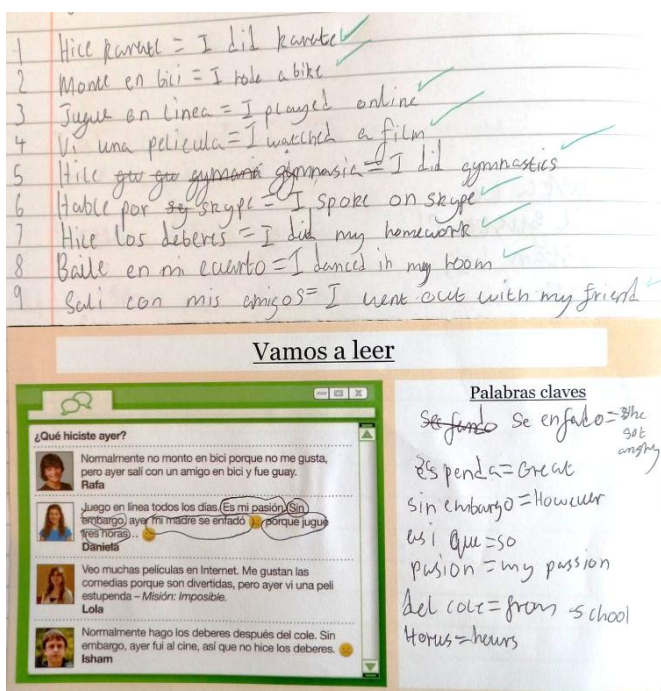 1 Hice karate = I did karate
2 Monte en bici = I rode a bike
3 Jugue en linea = I played online
4 Vi una pelicula = I watched a film
5 Hice gimnasia = I did gymnastics
6 Hable por skype = I spoke on skype
7 Hice los deberes = I did my homework
8 Baile en mi cuarto = I danced in my room
9 Sali con mis amigos = I went out with my friend
Vamos a leer
¿Qué hiciste ayer?
Normalmente no monto en bici porque no me gusta,
pero ayer salí con un amigo en bici y fue guay.
Rafa
Juego en línea todos los días. Es mi pasión. Sin
embargo, ayer mi madre se enfadó porque jugué
tres horas...
Daniela
Veo muchas películas en Internet. Me gustan las
comedias porque son divertidas, pero ayer vi una peli
estupenda – Misión: Imposible.
Lola
Normalmente hago los deberes después del cole. Sin
embargo, ayer fui al cine, así que no hice los deberes.
Isham
Palabras claves
Se enfado = She
got
angry
= Great
sin embargo = However
asi que = so
pasion = my passion
del cole = from school
Horas = hours